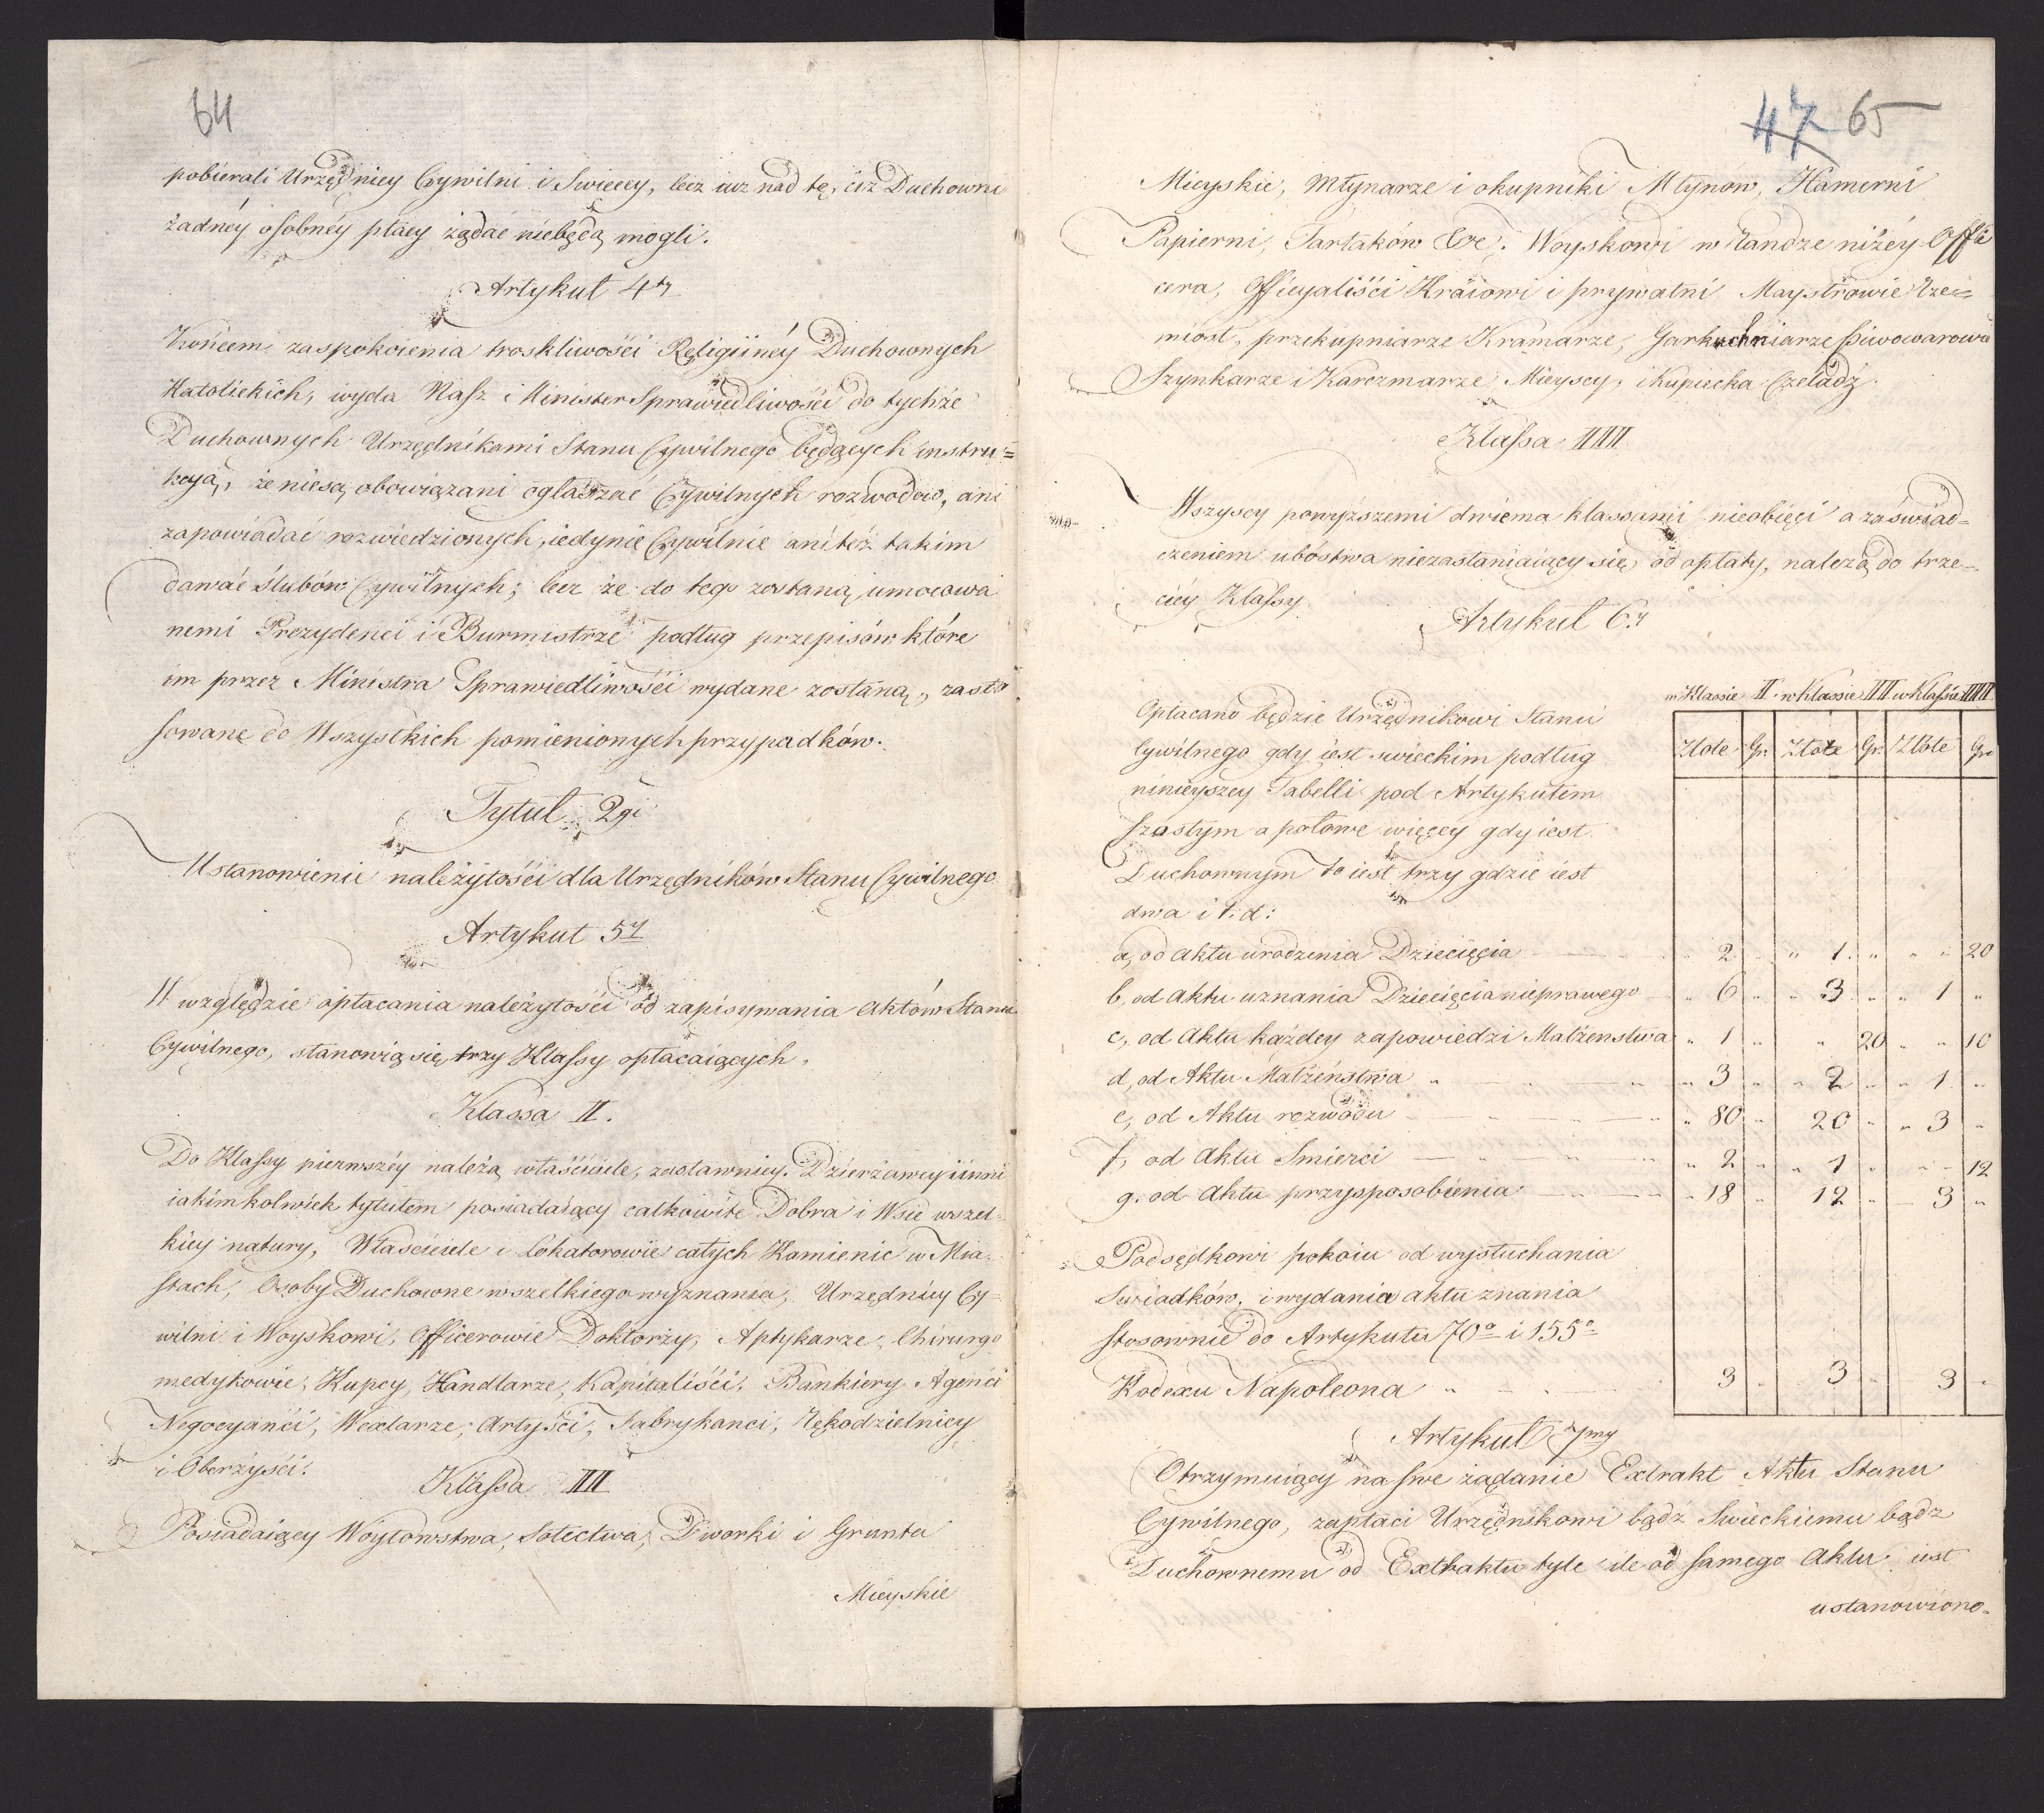 64
pobierali Urzędnicy Cywilni i Swieccy, lecz iuz nad tę, ciż Duchowni
żadnéy osobnéy płacy żądać niebędą mogli.
Artykuł 4ty
Końcem zaspokoienia troskliwości Religiinéy Duchownych
Katolickich, wyda Nasz Minister Sprawiedliwości do tychże
Duchownych Urzędnikami Stanu Cywilnego będących instru=
kcyą, że niesą obowiązani ogłaszać Cywilnych rozwodow, ani
zapowiadać rozwiedzionych, iedynie Cywilnie ani też takim
dawać ślubów Cywilnych; lecz że do tego zostaną umocowa
nemi Prezydenci i Burmistrze podług przepisów które
im przez Ministra Sprawiedliwości wydane zostaną, zasto
sowane do Wszystkich pomienionych przypadków.
Tytuł 2gi
Ustanowienie należytości dla Urzędników Stanu Cywilnego
Artykuł 5y
W względzie opłacania należytości od zapisywania Aktów Stanu
Cywilnego, stanowią się trzy Klassy opłacaiących.
Klassa I.
Do Klassy pierwszéy należą właściciele, zastawnicy. Dzierżawcy i inni
iakimkolwiek tytułem posiadaiący całkowite Dobra i Wsie wszel=
kiey natury, Właściciele i Lokatorowie całych Kamienic w Mia=
stach, Osoby Duchowne wszelkiego wyznania, Urzędnicy Cy=
wilni i Woyskowi, Officerowie Doktorzy, Aptykarze, Chirurgo
medykowie, Kupcy, Handlarze, Kapitaliści, Bankiery Agenci
Negocyanci, Wexlarze, Artyści, Fabrykanci, Rękodzielnicy
i Oberzyści.
Klassa II
Posiadaiący Woytowstwa, Sołectwa, Dworki i Grunta
Mieyskie
47 65
Mieyskie, Młynarze i okupniki Młynow, Hamerni
Papierni, Tartaków &c. Woyskowi w Randze niżéy Offi
cera, Officyaliści Kraiowi i prywatni Maystrowie Rze=
miost, przekupniarze Kramarze, Garkuchniarze Piwowarowie
Szynkarze i Karczmarze Mieyscy, i Kupiecka Czeladź.
Klassa III
Wszyscy powyższemi dwiema klassami nieobięci a zaświad=
czeniem ubóstwa niezasłaniaiący się od opłaty, należą do trze=
ciéy Klassy.
Artykuł 6y
w Klassie I w Klassie II w Klassie III
Opłacano będzie Urzędnikowi Stanu
Cywilnego gdy iest swieckim podług
Złote Gr. Złote Gr. Złote Gr.
ninieyszey Tabelli pod Artykułem
szostym a połowe więcey gdy iest
Duchownym to iest trzy gdzie iest
dwa i t. d:
a, od aktu urodzenia Dziecięcia 2 " 1 " " 20
b, od aktu uznania Dziecięcia nieprawego 6 " 3 " 1 "
c, od Aktu każdey zapowiedzi Małżenstwa 1 " " 20 " 10
d, od Aktu Małżeństwa 3 " 2 " 1 "
e, od Aktu rozwodu 80 " 20 " 3 "
f, od Aktu Smierci 2 " 1 " " 12
g. od Aktu przysposobienia 18 " 12 " 3 "
Podsędkowi pokoiu od wysłuchania
Swiadków, i wydania aktu znania
stosownie do Artykułu 70º i 155º
Kodexu Napoleona 3 " 3 " 3 "
Artykuł 7my
Otrzymuiący na swe żądanie Extrakt Aktu Stanu
Cywilnego, zapłaci Urzędnikowi bądz Swieckiemu bądz
Duchownemu od Extraktu tyle ile od samego Aktu iest
ustanowiono.